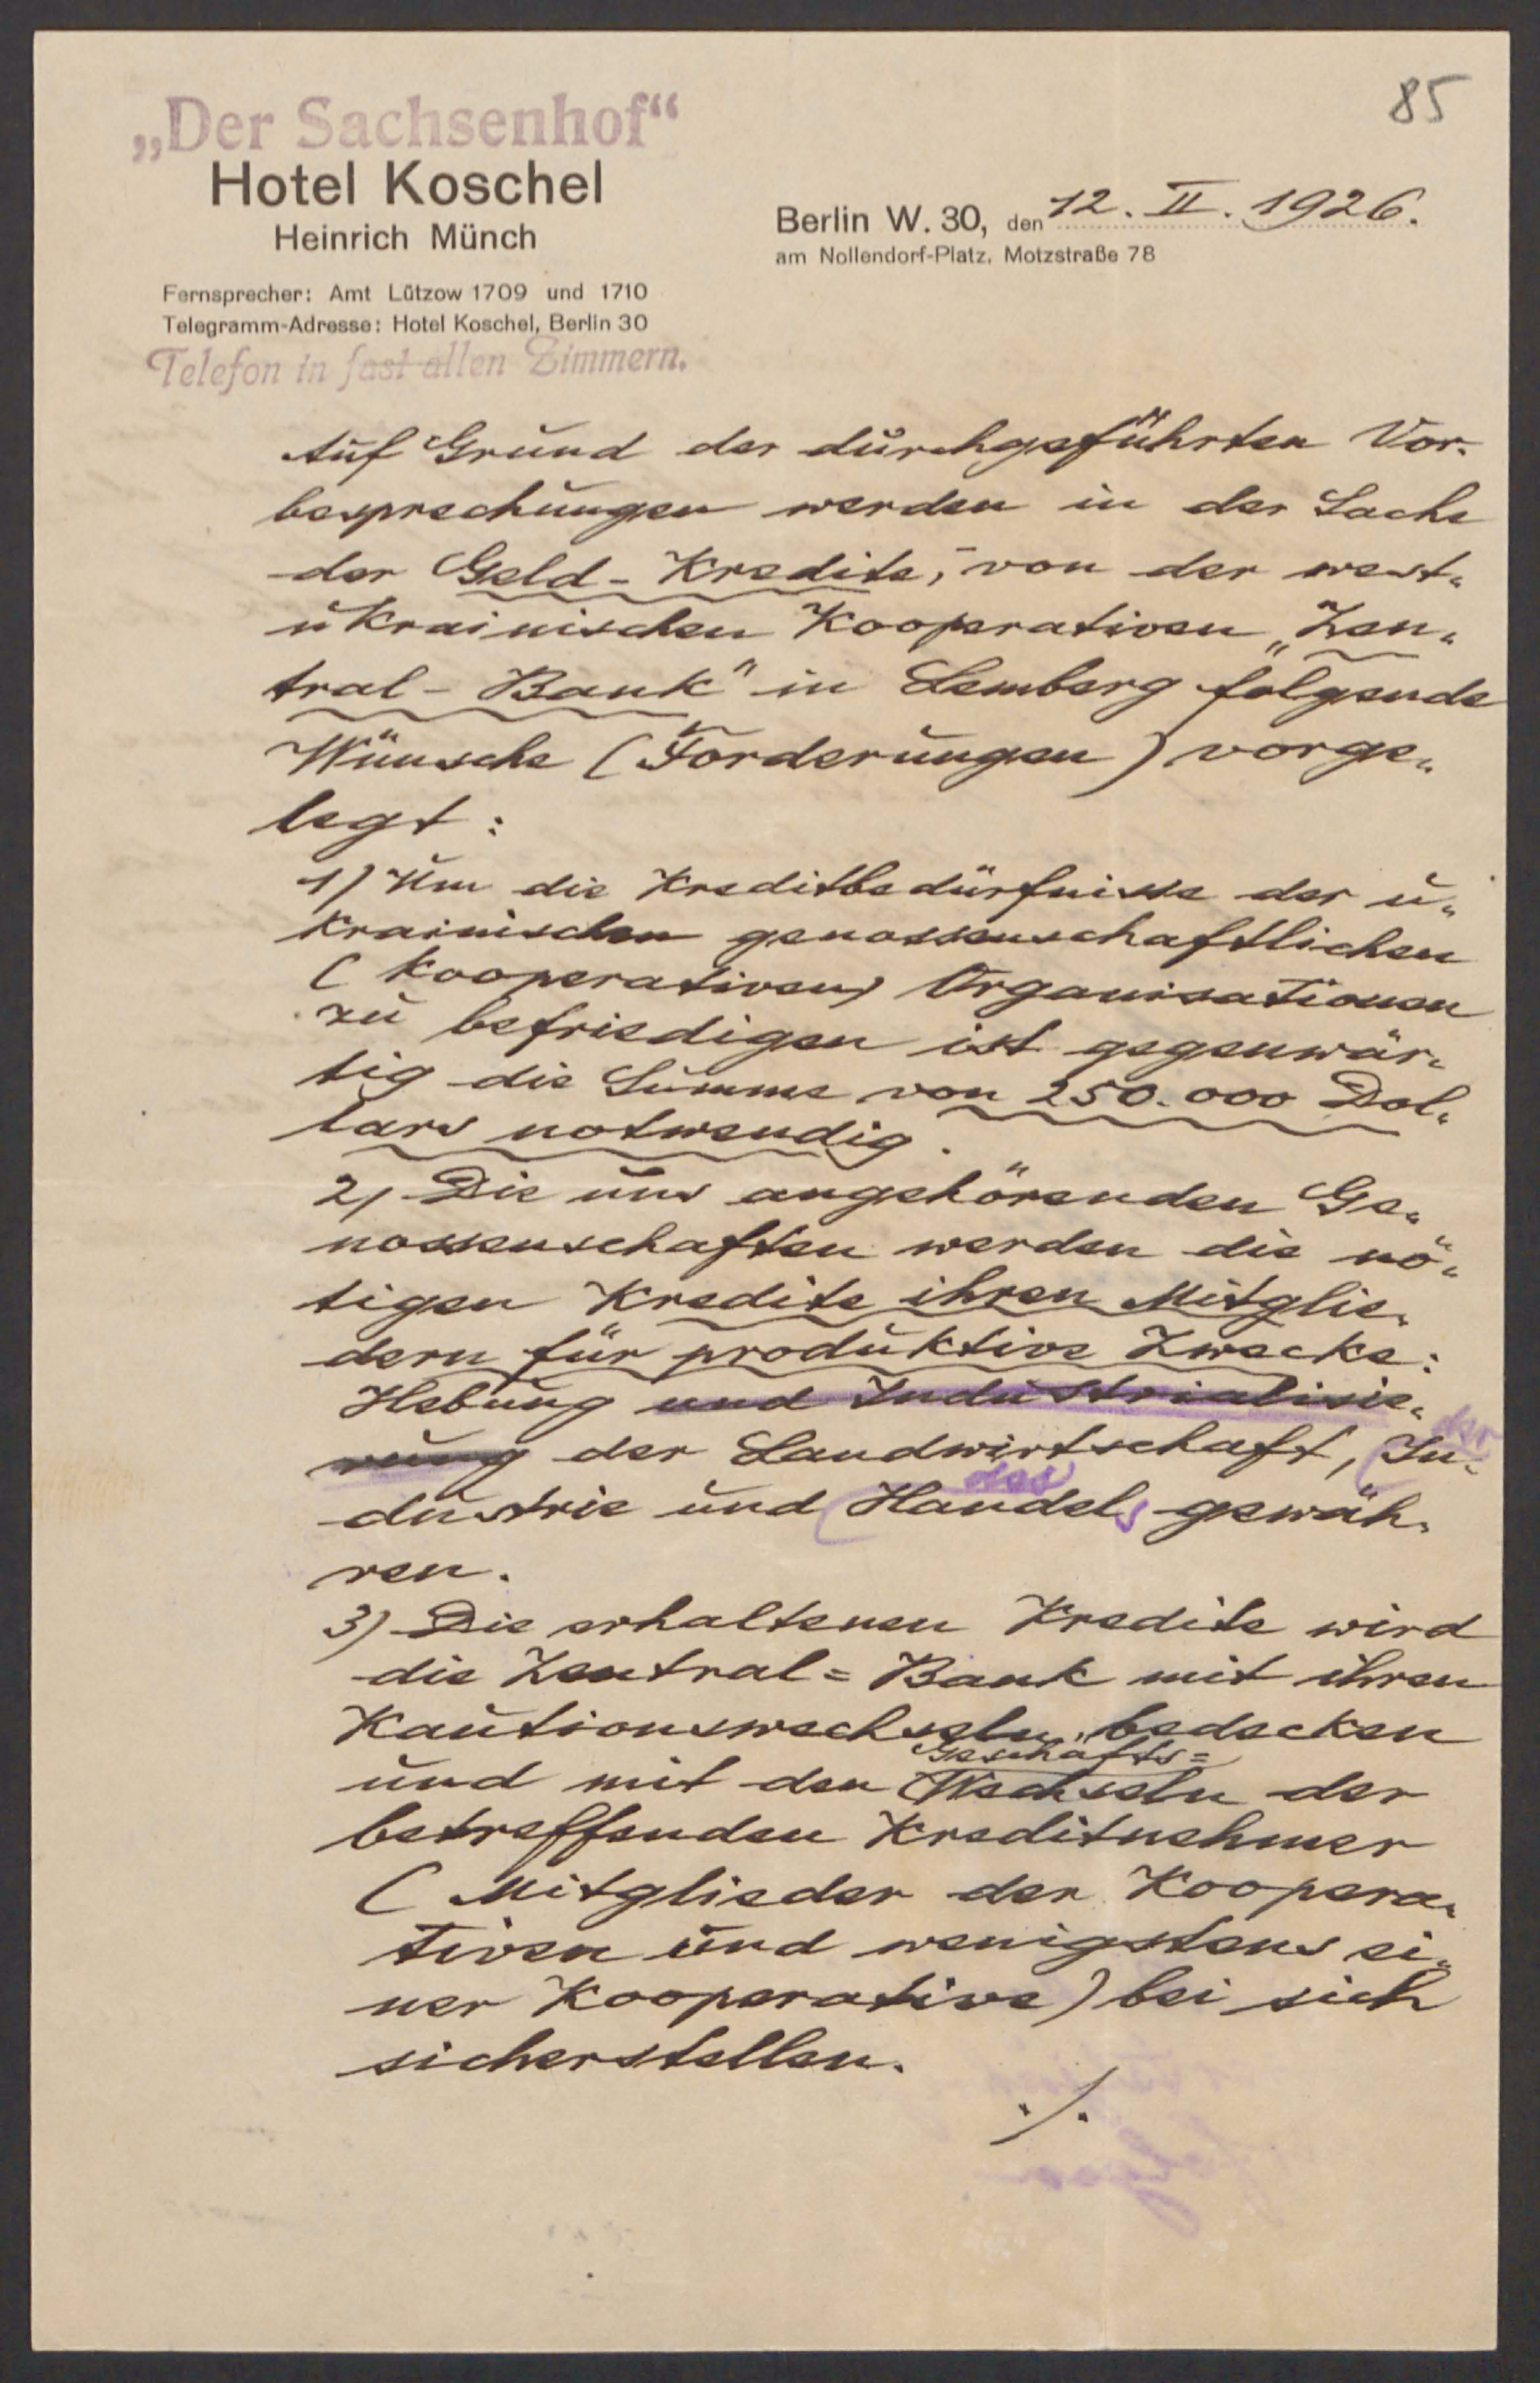 85
„Der Sachsenhof“
Hotel Koschel
Heinrich Münch
Berlin W. 30, den 12. II. 1926.
am Nollendorf-Platz, Motzstraße 78
Fernsprecher: Amt Lützow 1709 und 1710
Telegramm-Adresse: Hotel Koschel, Berlin 30
Telefon in fast allen Zimmern.
Auf Grund der durchgeführten Vor-
besprechungen werden in der Sache
der Geld-Kredite, von der west-
ukrainischen Kooperativen „Zen-
tral-Bank" in Lemberg folgende
Wünsche (Forderungen) vorge-
legt:
1) Um die Kreditbedürfnisse der u-
krainischen genossenschaftlichen
(kooperativen) Organisationen
zu befriedigen ist gegenwär-
tig die Summe von 250.000 Dol-
lars notwendig.
2) Die uns angehörenden Ge-
nossenschaften werden die nö-
tigen Kredite ihren Mitglie-
dern für produktive Zwecke:
Hebung und Industrialisie-
rung der Landwirtschaft, der In-
dustrie und des Handels gewäh-
ren.
3) Die erhaltenen Kredite wird
die Zentral=Bank mit ihren
Kautionswechseln bedecken
und mit den Geschäfts=Wechseln der
betreffenden Kreditnehmer
(Mitglieder der Koopera-
tiven und wenigstens ei-
ner Kooperative) bei sich
sicherstellen.
./.